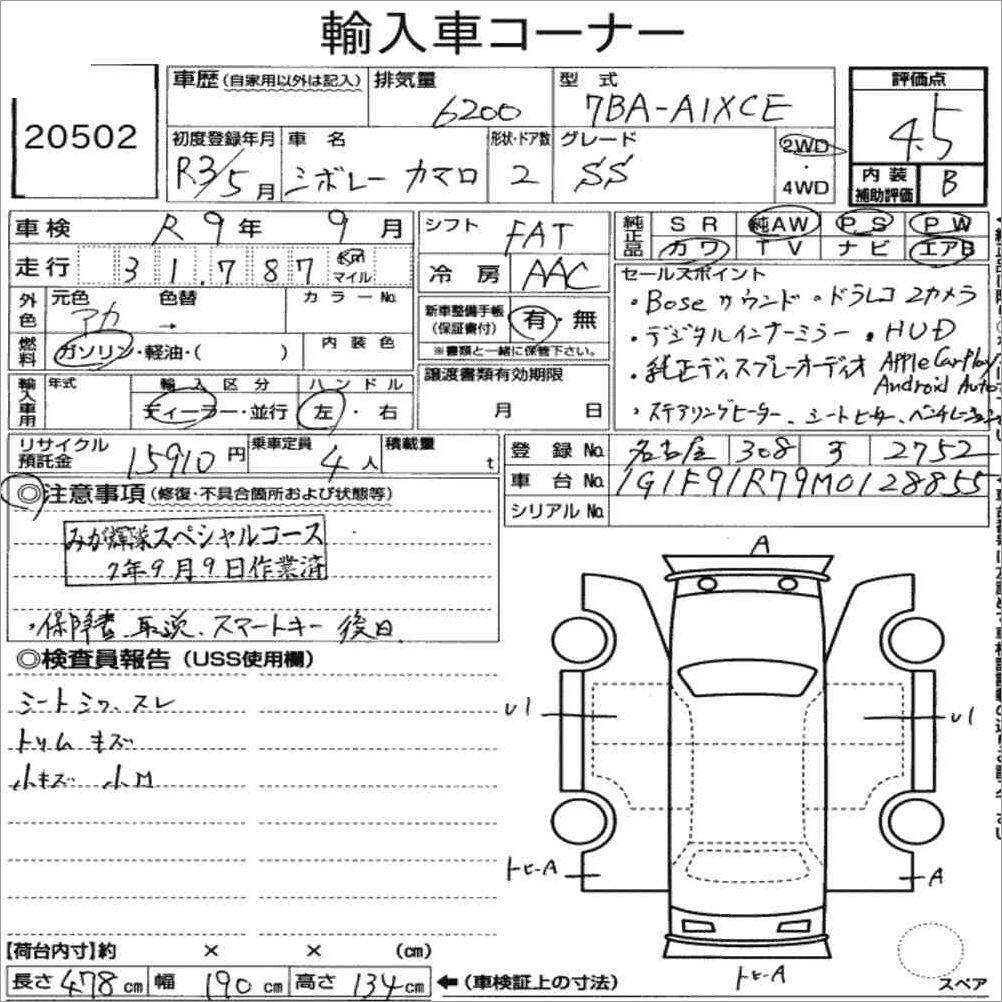 輸入車コーナー
20502
車歴 (自家用以外は記入) 排気量 型式 評価点
6200 7BA-A1XCE 4.5
初度登録年月 車名 形状・ドア数 グレード 2WD・4WD
R3/5月 シボレー カマロ 2 SS
内装補助評価 B
車検 R9年 9月 シフト FAT
純正品 SR 純AW PS PW
カワ TV ナビ エアB
走行 31,787 km マイル 冷房 AAC
外色 元色 アカ 色替 → カラーNo.
新車整備手帳(保証書付) 有・無
※書類と一緒に保管下さい。
燃料 ガソリン・軽油・( ) 内装色
セールスポイント
・Boseサウンド ・ドラレコ2カメラ
・デジタルインナーミラー ・HUD
・純正ディスプレーオーディオ AppleCarPlay/
Android Auto
・ステアリングヒーター、シートヒーター、ベンチレーション
輸入車用 年式 輸入区分 ディーラー・並行 ハンドル 左・右
譲渡書類有効期限
月 日
リサイクル預託金 15910円 乗車定員 4人 積載量 t
登録No. 名古屋 308 す 2752
車台No. 1G1F91R79M0128855
シリアルNo.
◎注意事項 (修復・不具合箇所および状態等)
みが輝隊スペシャルコース
7年9月9日作業済
・保障書、取説、スマートキー 後日
◎検査員報告 (USS使用欄)
シートシワ、スレ
トリムキズ
小キズ 小M
A
U1 U1
トヒ-A A
トヒ-A
スペア
【荷台内寸】約 × × (cm)
長さ 478 cm 幅 190 cm 高さ 134 cm ←(車検証上の寸法)